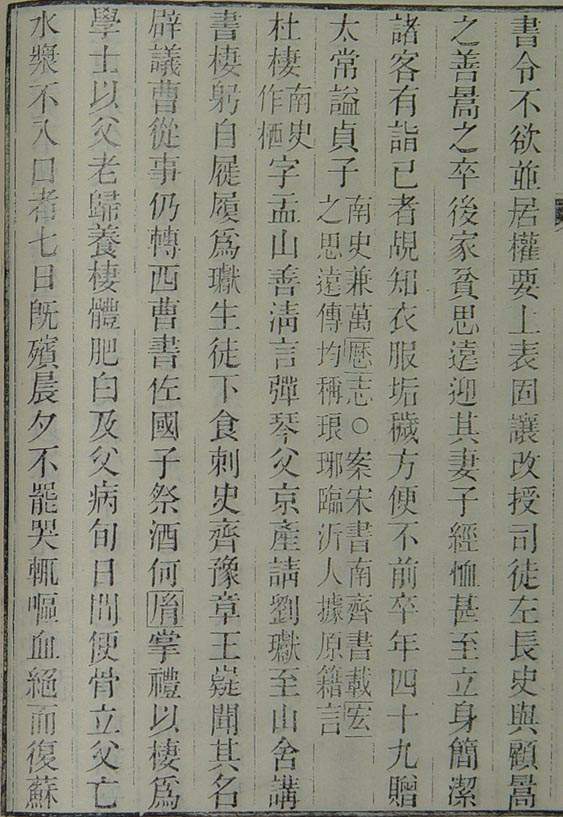 書令不欲並居權要上表固讓改授司徒左長史與顧暠
之善暠之卒後家貧思遠迎其妻子經恤甚至立身簡潔
諸客有詣已者覘知衣服垢穢方便不前卒年四十九贈
太常謚貞子南史兼萬厯志○案宋書南齊書載宏之思遠傳均稱琅琊臨沂人據原籍言
杜棲南史作栖字孟山善清言彈琴父京產請劉瓛至山舍講
書棲躬自屣履爲瓛生徒下食刺史齊豫章王嶷聞其名
辟議曹從事仍轉西曹書佐國子祭酒何胤掌禮以棲爲
學士以父老歸養棲體肥白及父病旬日間便骨立父亡
水漿不入口者七日既殯晨夕不罷哭輒嘔血絕而復蘇